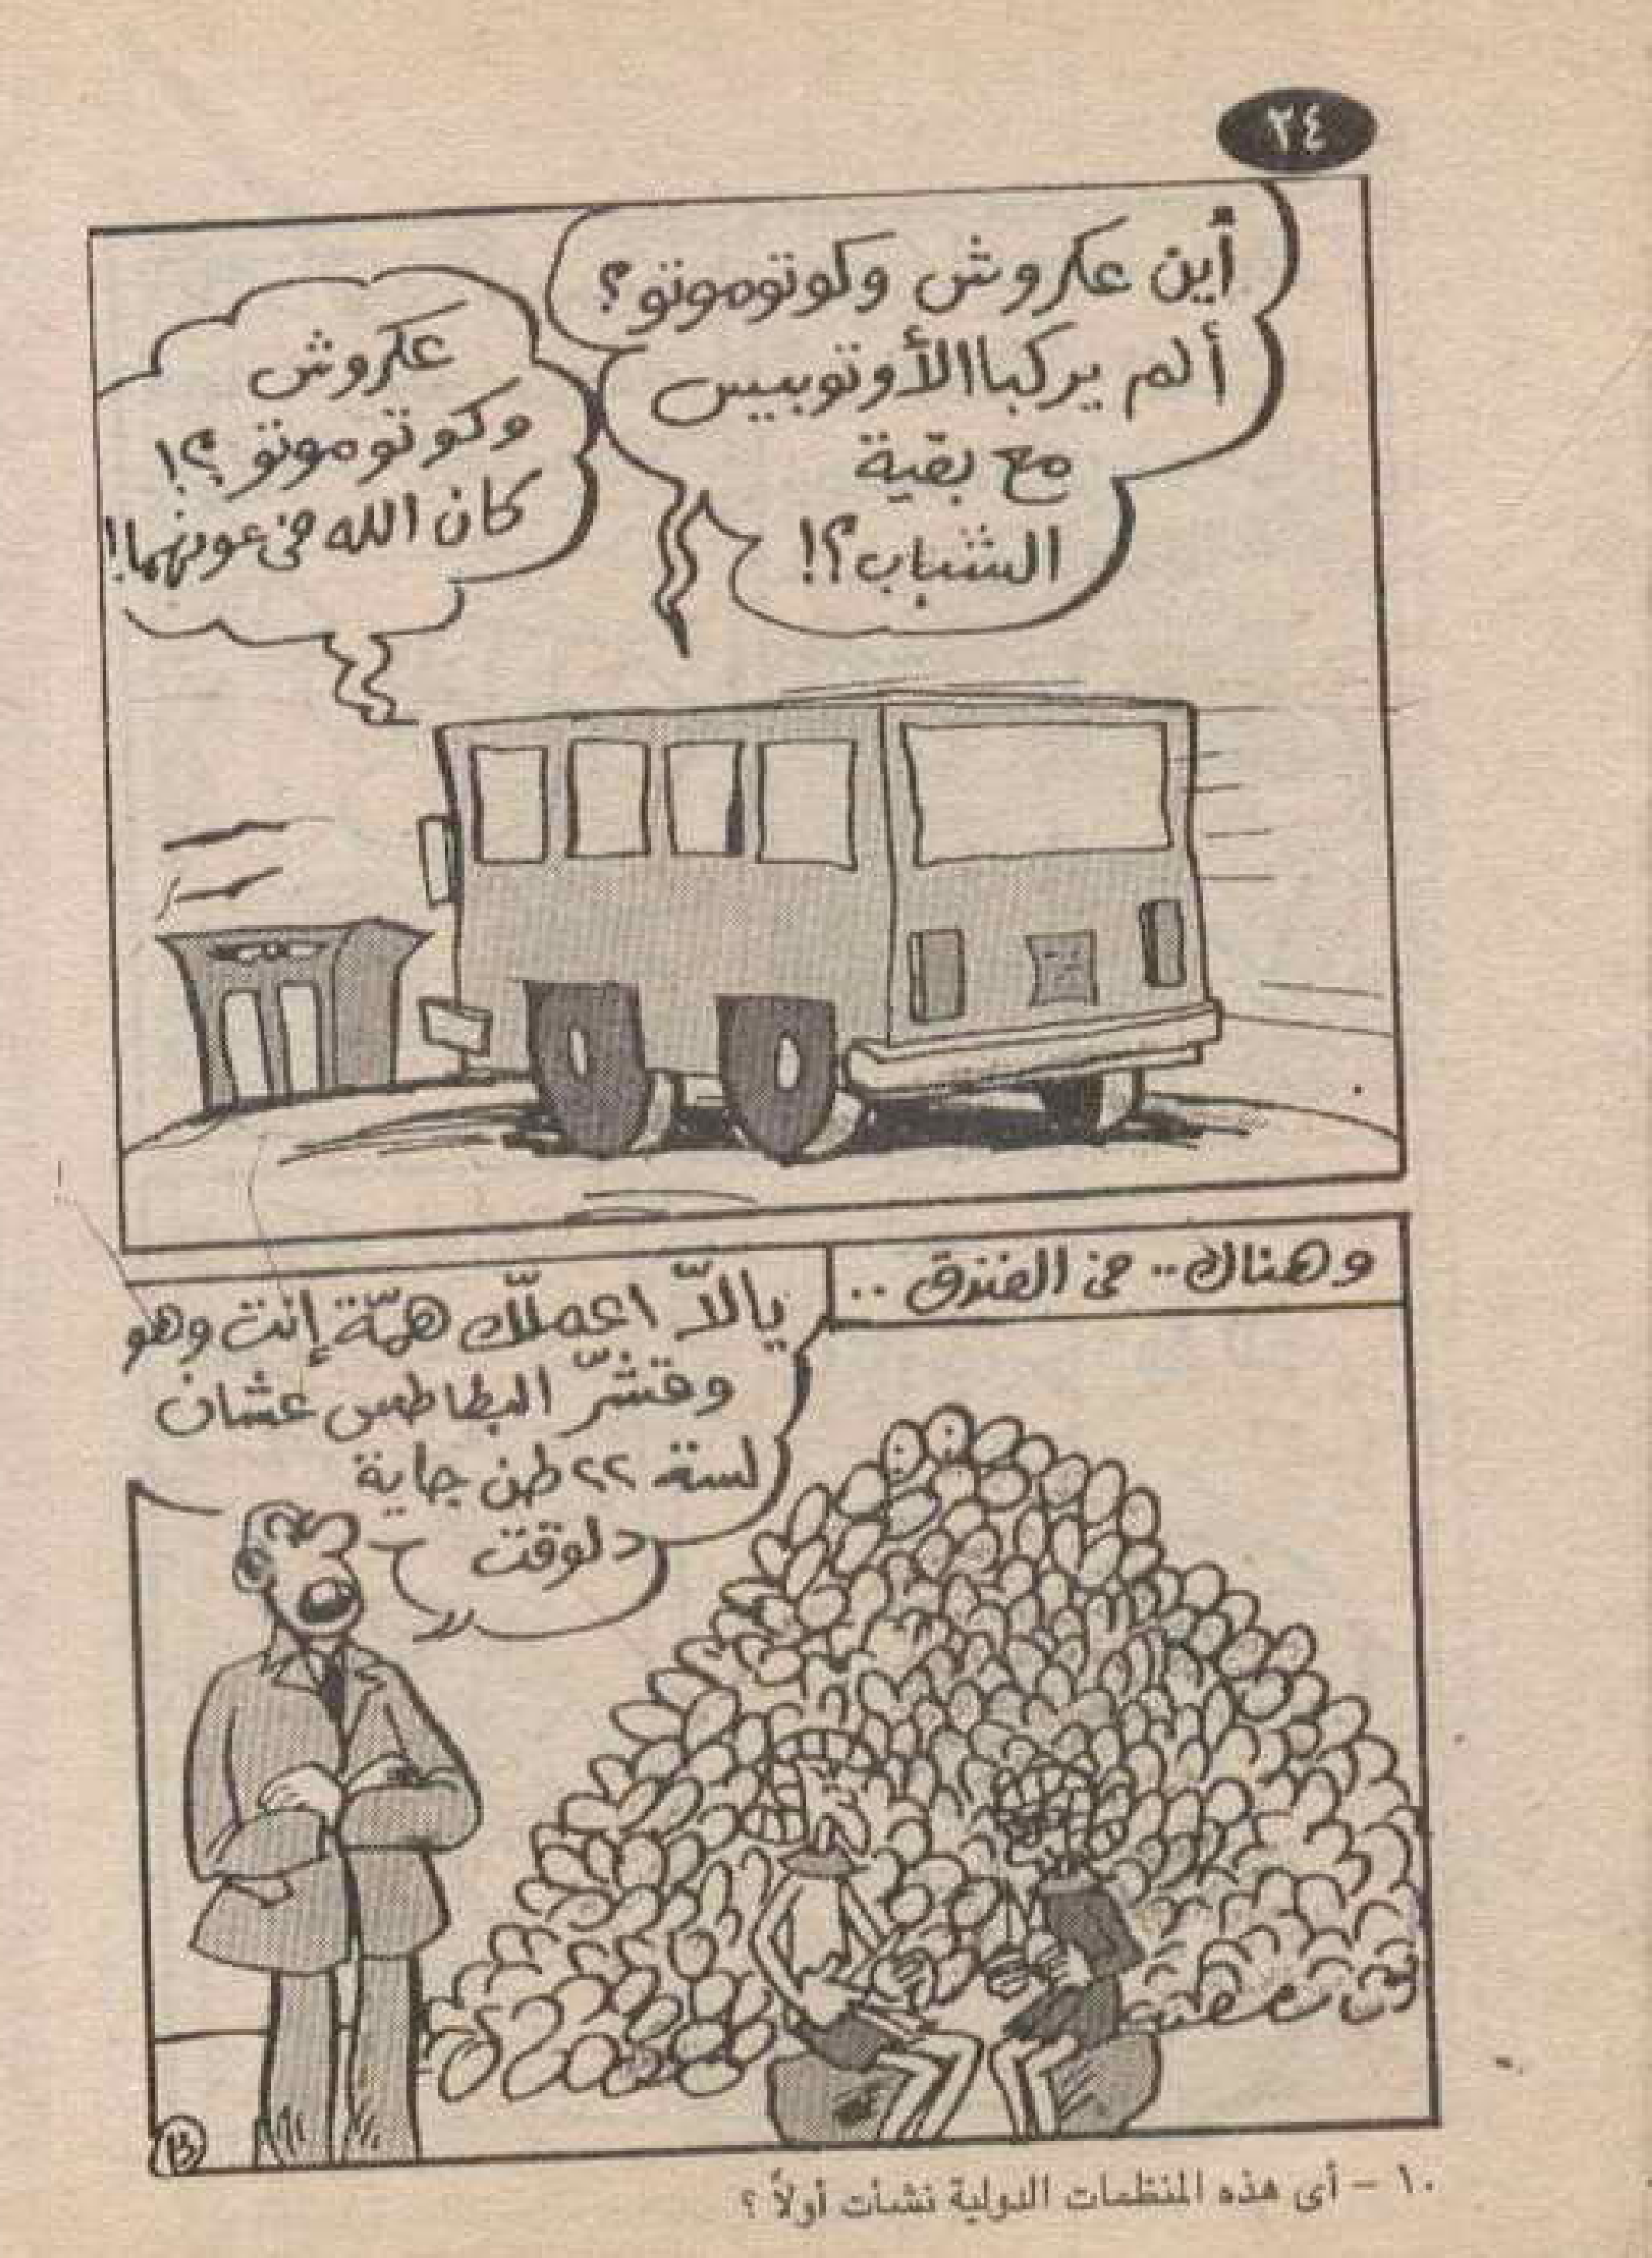 ٢٤
أين عكروش وكوتوموتو؟
ألم يركبا الأوتوبيس
مع بقية
الشباب؟!
عكروش
وكوتوموتو؟!
كان الله فى عونهما!
وهناك.. فى الفندق..
يالاّ اعملّك همّة إنت وهو
وقشّر البطاطس عشان
لسة ٢٢ طن جاية
دلوقت
١٣
١٠ - أى هذه المنظمات الدولية نشأت أولاً ؟